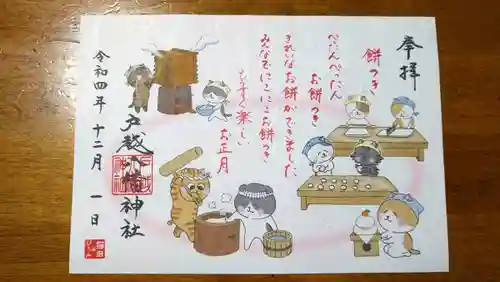 奉拝
餅つき
ぺったんぺったん
お餅つき
きれいなお餅ができました
みんなでにこにこお餅つき
もうすぐ楽しい
お正月
戸越八幡神社
令和四年 十二月 一日